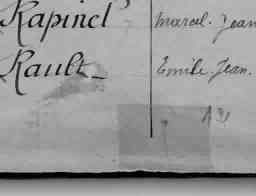 Rapinel Marcel. Jean
Rault_ Emile. Jean.